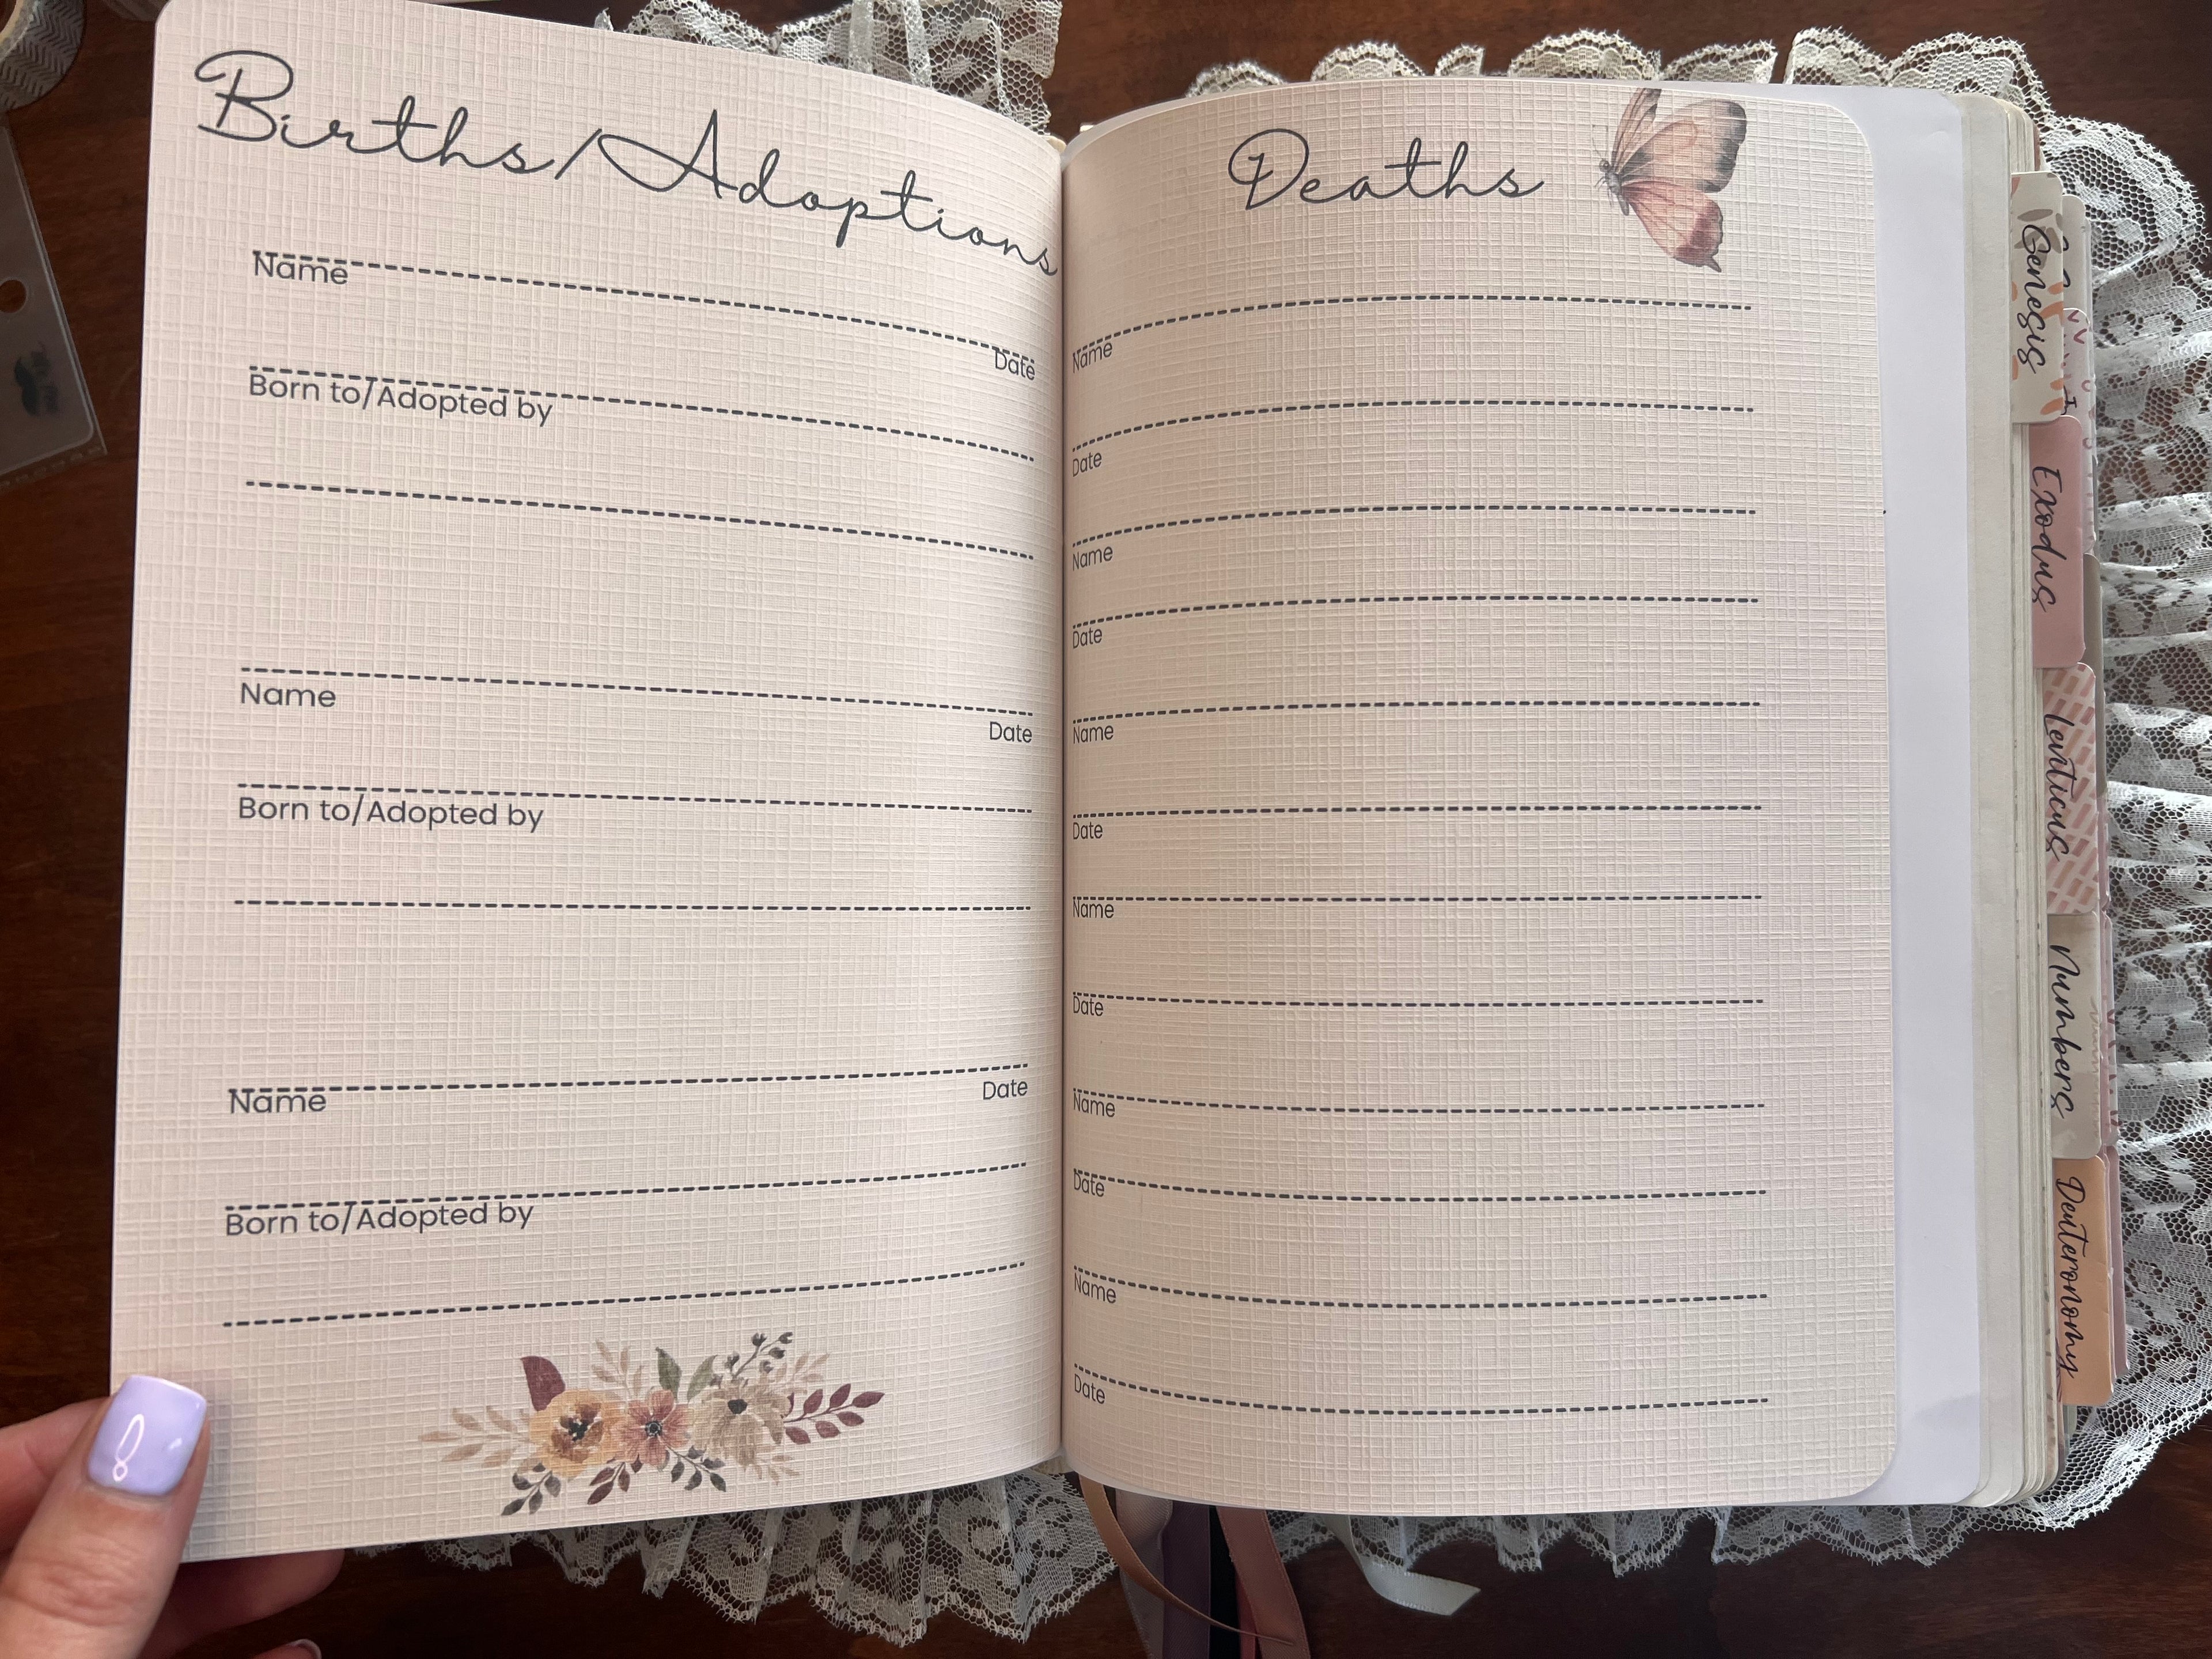 Births/Adoptions
Name
Date
Born to/Adopted by
Name
Date
Born to/Adopted by
Name
Date
Born to/Adopted by
Deaths
Name
Date
Name
Date
Name
Date
Name
Date
Name
Date
Name
Date
Genesis
Exodus
Leviticus
Numbers
Deuteronomy